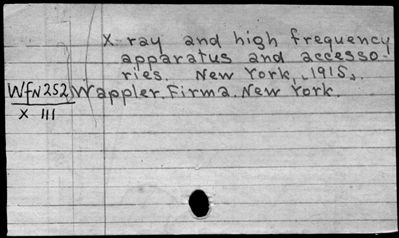 X ray and high frequency
apparatus and accesso-
ries. New York, 1915.
WfN252 Wappler. Firma. New York.
X III